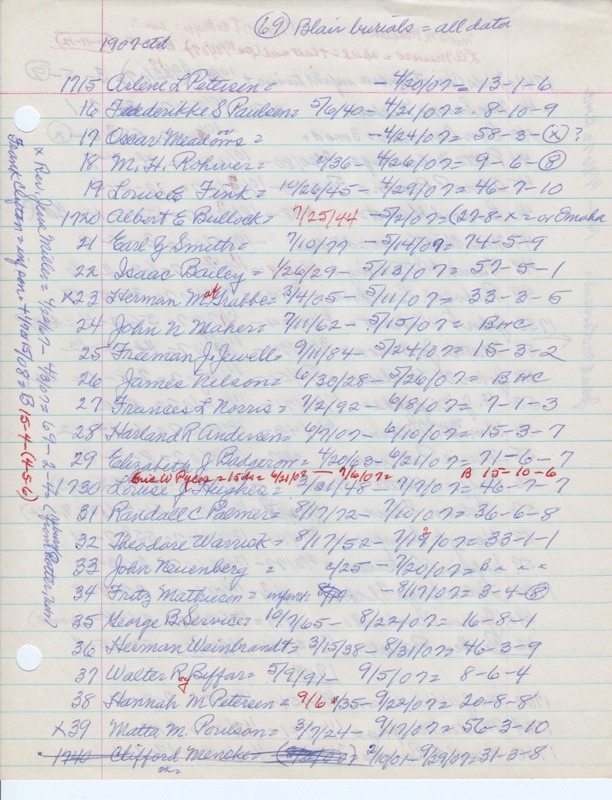 (69) Blair burials = all data
1907 ctd
1715 Arlene L Petersen = - 4/20/07 = 13-1-6
16 Frederikke S Paulson = 5/6/40 - 4/21/07 = 8-10-9
17 Oscar Meadows = - 4/24/07 = 58-3-(x) ?
18 M. H. Rohwer = /36 - 4/26/07 = 9-6-(8)
19 Louis E Fink = 10/26/45 - 4/29/07 = 46-7-10
1720 Albert E Bullock = 7/25/44 - 5/2/07 = (27-8-x = or Omaha
21 Earl Z Smith = 7/10/77 - 5/14/07 = 74-5-9
22 Isaac Bailey = 1/26/29 - 5/13/07 = 57-5-1
x23 Herman M Grabbe = 3/4/05 - 5/11/07 = 33-3-5
24 John N Maher = 7/11/62 - 5/15/07 = B+C
25 Freeman J. Jewell = 9/11/84 - 5/24/07 = 15-3-2
26 James Nelson = 6/30/28 - 5/26/07 = B+C
27 Frances L Norris = 7/2/92 - 6/8/07 = 7-1-3
28 Harland R Andersen = 6/7/07 - 6/10/07 = 15-3-7
29 Elizabeth J Badgerow = 4/20/63 - 6/21/07 = 71-6-7
= 15da = 6/21/07 - 7/6/07 = B 15-10-6
1730 Louise J Hughes = 3/21/48 - 7/7/07 = 46-7-7
31 Randall C Palmer = 8/17/72 - 7/10/07 = 36-6-8
32 Theodore Warrick = 8/17/52 - 7/12/07 = 33-1-1
33 John Neuenberg = /25 - 7/20/07 =
34 Fritz Mathieson = infant - 8/17/07 = 3-4-(8)
35 George B Service = 10/7/65 - 8/22/07 = 16-8-1
36 Herman Weinbrandt = 3/15/38 - 8/31/07 = 46-3-9
37 Walter Roy Peffar = 5/9/91 - 9/5/07 = 8-6-4
38 Hannah M Petersen = 9/6/35 - 9/22/07 = 20-8-8
x39 Matta M. Poulson = 3/7/24 - 9/17/07 = 56-3-10
1740 Clifford Mencke = 2/10/01 - 9/29/07 = 31-3-8
x Rev. Jene Miller = 4/29/67 - 4/3/07 = 69-2-4
Frank Clifton = B 15-4-(4-5-6)